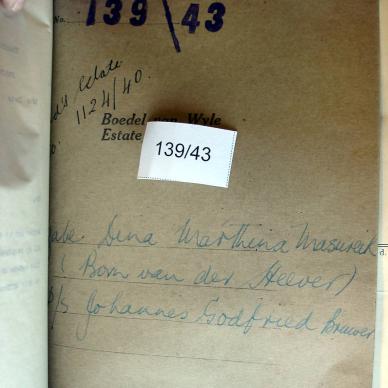 No. 139\43
Estate
1124/40.
Boedel van Wyle
Estate
139/43
Dina Marthina Masureik
(Born van der Heever)
Johannes Godfried Brouwer
d.